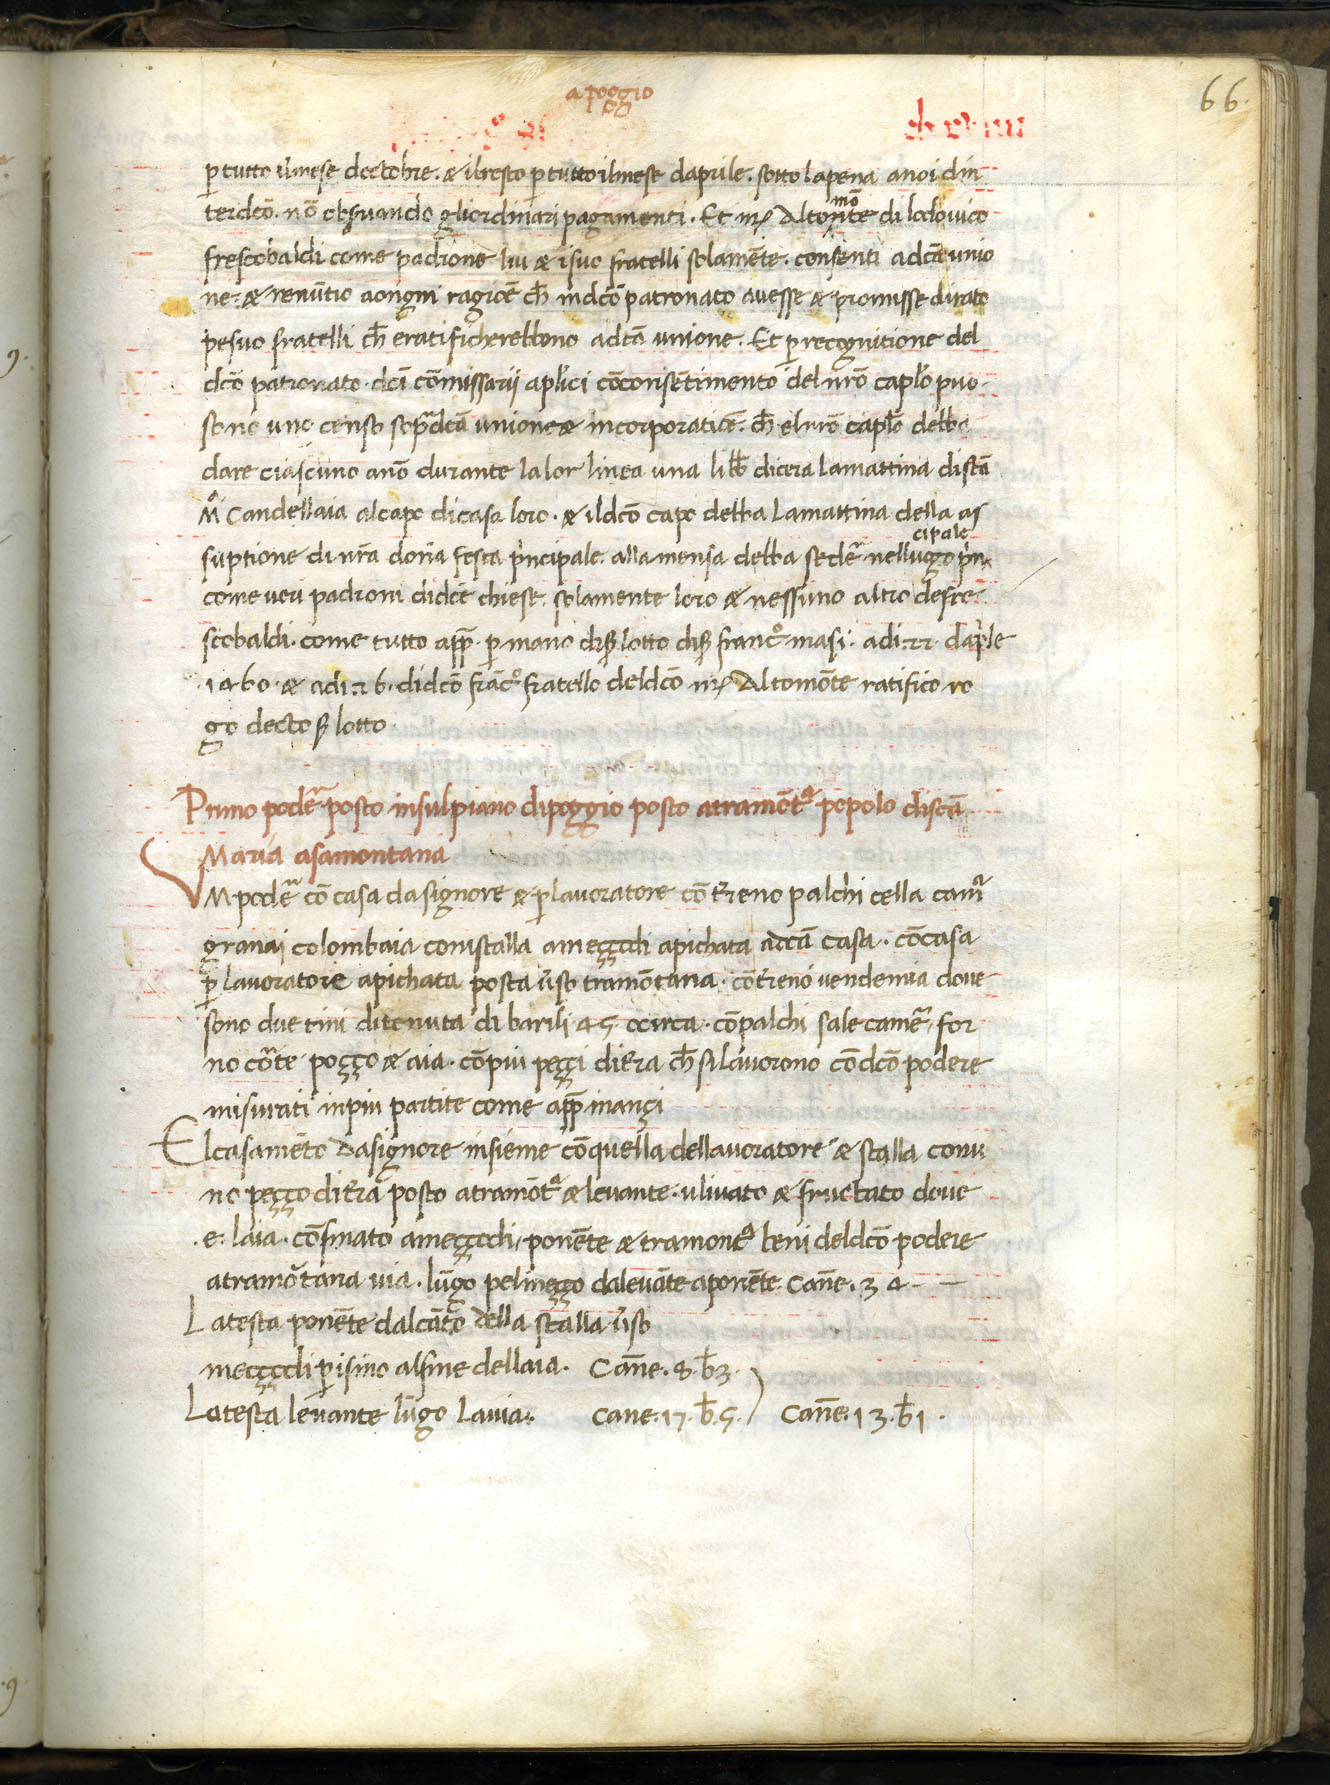 66
a poggio
ꝑ tutto ilmese doctobre. & ilresto ꝑ tutto ilmese daprile. sotto lapena anoi din
terdcō. nō obs̄uando gliordinari pagamenti. Et mʒ Altomōte di lodovico
frescobaldi come padrone lui & i suo fratelli solamēte. consenti adcā unio
ne. & renūtio aongni ragiōe ch̄ indcō patronato avesse & promisse dirato
pesuo fratelli ch̄ eratificherebbono adcā unione. Et ꝑ recognitione del
dcō patronato. dcī cōmissarij aplīci cōconsētimento del nr̄o capl̄o puo
sono uno censo sopradcā unione & incorporatiōe. ch̄ elnr̄o capl̄o debba
dare ciascuno anō durante lalor linea una libb̄ dicera lamattina discā
Mᵃ Candellaia alcapo dicasa loro. & ildcō capo debba lamattina della as
suptione di nr̄a don̄a festa p̄ncipale. alla mensa debba sedē nelluogo p̄n
cipale
come veri padroni didcē chiese. solamente loro & nessuno altro defre
scobaldi. come tutto app̄ ꝑ mano dis̄ lotto dis̄ francᵒ masi. adi 22 dap̄le
1460. & adi 26. didcō frācᵒ fratello deldcō mʒ Altomōte ratifico ro
go decto s̄ lotto
Primo podē posto insulpiano dipoggio posto atramōtᵃ popolo discā
Maria asamontana
VM podē cō casa dasignore & ꝑ lavoratore cō tr̄eno palchi cella camʳ
granai colombaia conistalla ameççodi apichata adcā casa. cōcasa
ꝑ lavoratore apichata posta v̄so tramōtana. cōtr̄eno vendemia dove
sono due tini ditenuta di barili 45 ocirca. cōpalchi sale camē, for
no cōte poççо & aia. cōpiu peççi ditr̄a ch̄ silavorono cōdcō podere
misurati inpiu partite come app̄ inançi
El casamēto dasignore insieme cōquella dellavoratore & stalla conu
no peçço ditr̄a posto atramōtᵃ & levante. ulivato & fructato dove
e. laia. cōfinato ameççodi, ponēte & tramontᵃ beni deldcō podere
atramōtana via. lūgo pelmeçço dalevāte aponēte Can̄e. 34 —
Latesta ponēte dalcāto della stalla v̄so
meççodi ꝑ isino alfine dellaia. Can̄e. 8. b̄3.
Latesta levante lūgo lavia. Cane. 17. b̄. 5. ) Can̄e. 13. b̄1.